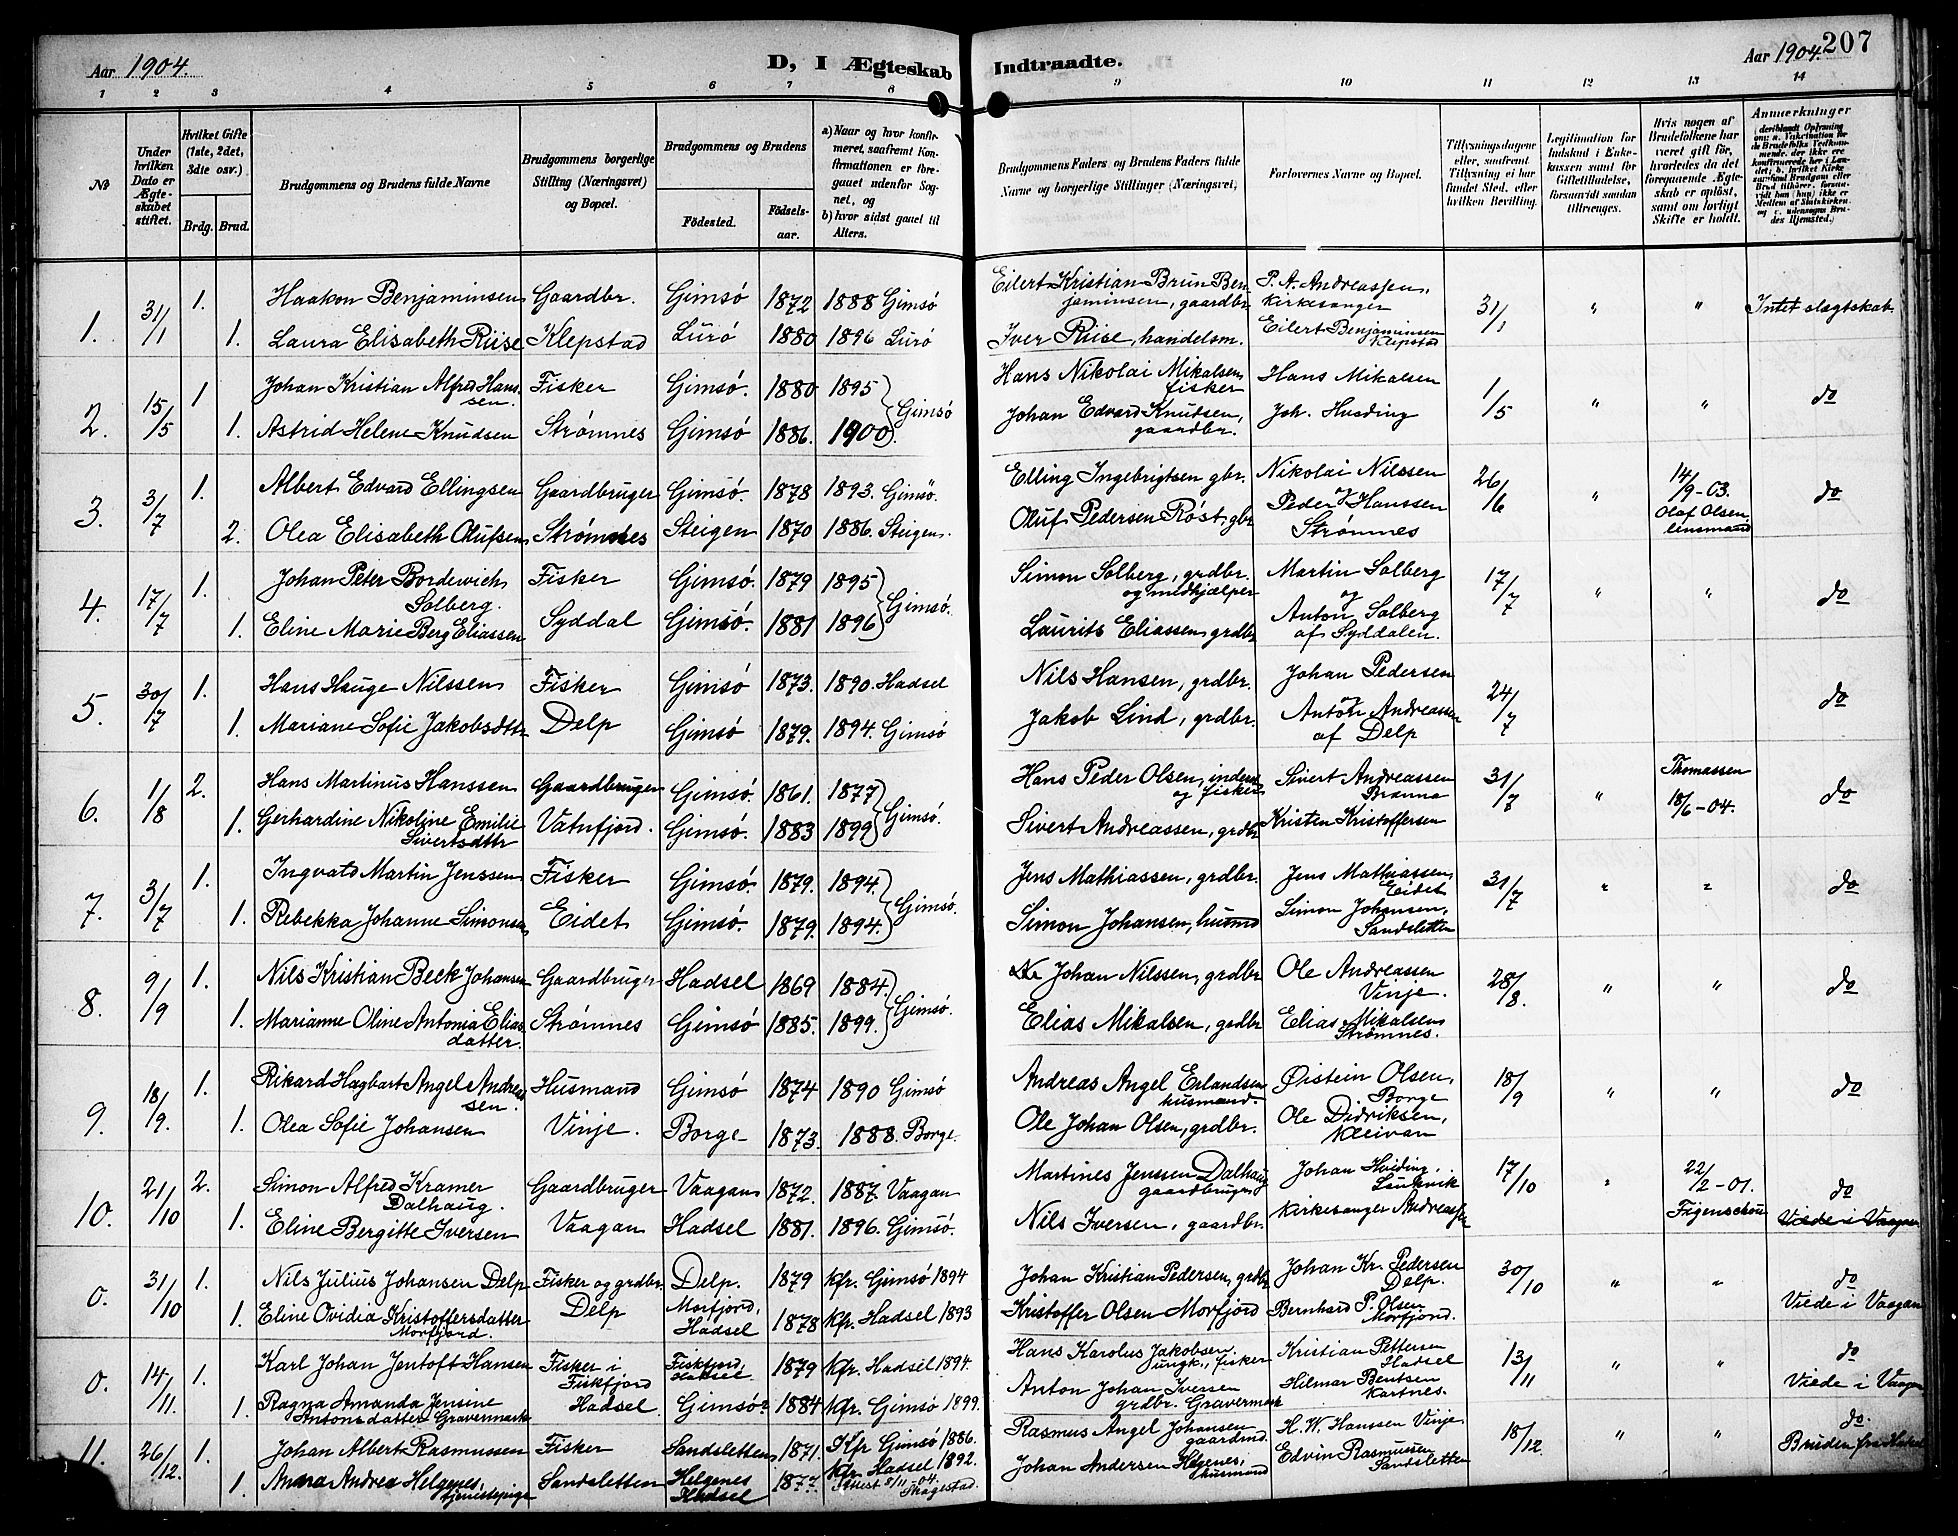 Aar 1904.
D, I Ægteskab Indtraadte.
Aar 1904. 207
1 2 3 4 5 6 7 8 9 10 11 12 13 14
No
Under hvilken Dato er Ægteskabet stiftet.
Hvilket Gifte (1ste, 2det, 3die osv.)
Brdg. Brud.
Brudgommens og Brudens fulde Navne
Brudgommens borgerlige Stilling (Næringsvei) og Bopæl.
Brudgommens og Brudens
Födested.
Födsels-aar.
a) Naar og hvor konfirmeret, saafremt Konfirmationen er foregaaet udenfor Sognet, og
b) hvor sidst gaaet til Alters.
Brudgommens Faders og Brudens Faders fulde Navne og borgerlige Stillinger (Næringsvei)
Forlovernes Navne og Bopæl.
Tillysningsdagene eller, saafremt Tillysning ei har fundet Sted, efter hvilken Bevilling.
Legitimation for Indskud i Enkekassen samt for Giftetilladelse, forsaavidt saadan tiltrænges.
Hvis nogen af Brudefolkene har været gift för, hvorledes da det foregaaende Ægteskab er oplöst, samt om lovligt Skifte er holdt.
Anmerkninger
1. 31/1 1. Haakon Benjaminsen Gaardbr. Gimsö 1872 1888 Gimsö Eilert Kristian Brun Benjaminsen, gaardbr. P. A. Andreassen, Kirkesanger 31/1 " " Intet slægtskab
1. Laura Elisabeth Riise Klepstad Lurö 1880 1896 Lurö Iver Riise, handelsm. Eilert Benjaminsen Klepstad
2. 15/5 1 Johan Kristian Alfred Hanssen. Fisker Gimsö. 1880 1895 Gimsö Hans Nikolai Mikalsen, fisker Hans Mikalsen 1/5 " " do
1. Astrid Helene Knudsen Strømnes Gimsö 1886. 1900. Johan Edvard Knudsen, gaardbr. Joh. Husding
3. 3/7 1. Albert Edvard Ellingsen Gaardbruger Gimsö. 1878 1893. Gimsö. Elling Ingebrigtsen gbr. Nikolai Nilssen 26/6 " 14/9-03. Olaf Olsen lensmand do
2. Olea Elisabeth Olufsen Strømnes Steigen 1870 1886. Steigen. Oluf Pedersen Röst gbr Peder Hanssen Strømnes
4. 17/7 1. Johan Peter Bordewich Solberg. Fisker Gimsö. 1879 1895 Gimsö. Simon Solberg, grdbr. og medhjælper Martin Solberg og 17/7 " " do
1. Eline Marie Berg Eliassen Syddal Gimsö. 1881 1896 Laurits Eliassen, grdbr Anton Solberg af Syddalen.
5. 30/7 1. Hans Hauge Nilssen Fisker Gimsö 1873. 1890. Hadsel Nils Hansen, grdbr. Johan Pedersen og 24/7 do
1 Mariane Sofie Jakobsdttr Delp Gimsö 1879. 1894. Gimsö Jakob Lind, grdbr. Anton Andreassen af Delp
6. 1/8 2. Hans Martinus Hanssen Gaardbruger Gimsö. 1861. 1877 Gimsö. Hans Peder Olsen, inders og fisker Sivert Andreassen Brenna 31/7 " Thomassen 18/6-04. do
1. Gerhardine Nikoline Emilie Sivertsdttr Vatnfjord. Gimsö. 1883 1899 Sivert Andreassen, grdbr Kristen Kristoffersen
7. 3/7 1. Ingvald Martin Jenssen Fisker Gimsö. 1879. 1894. Gimsö. Jens Mathiassen, grdbr. Jens Mathiassen, Eidet 31/7 " " do
1. Rebekka Johanne Simonsen Eidet Gimsö. 1879. 1894. Simon Johansen, husmd Simon Johansen, Sandsletten
8. 9/9 1. Nils Kristian Beck Johansen Gaardbruger Hadsel 1869 1884. Gimsö. Johan Nilssen, grdbr Ole Andreassen Vinje. 28/8. " " do
1. Marianne Oline Antonia Eliasdatter. Strømnes Gimsö 1885. 1899. Elias Mikalsen, grdbr Elias Mikalsen Strømnes.
9. 18/9. 1. Rikard Hagbart Angel Andreassen. Husmand Gimsö 1874 1890 Gimsö Andreas Angel Erlandsen husmand. Øistein Olsen, Borge 18/9 " " do
1. Olea Sofie Johansen Vinje. Borge 1873. 1888. Borge. Ole Johan Olsen, grdbr. Ole Didriksen, Kleivan
10. 21/10 2. Simon Alfred Kramer Dalhaug. Gaardbruger Vaagan 1872. 1887. Vaagan Martines Jenssen Dalhaug gaardbruger Johan Hviding, Laukvik 17/10 " 22/2-01. Figenschou do
1. Eline Bergitte Iversen Vaagan Hadsel 1881. 1896. Gimsö. Nils Iversen, gaardbr. Kirkesanger Andreassen Viede i Vaagan
0. 31/10 1. Nils Julius Johansen Delp Fisker og grdbr. Delp. 1879 Kfr. Gimsö 1894 Johan Kristian Pedersen, grdbr Johan Kr. Pedersen Delp. 30/10 " " do
1. Eline Ovidia Kristoffersdatter Morfjord. Delp Morfjord, Hadsel 1878 Kfr. Hadsel 1893 Kristoffer Olsen Morfjord Bernhard P. Olsen Morfjord. Viede i Vaagan
0. 14/11. 1. Karl Johan Jentoft Hansen Fisker i Fiskfjord Hadsel Fiskfjord, Hadsel 1879 Kfr. Hadsel 1894. Hans Karolus Jakobsen, ungk., fisker Kristian Pettersen Hadsel 13/11 " " do
1. Ragna Amanda Jensine Antonsdatter Gravermark Gimsö. 1884 Kfr. Gimsö 1899. Anton Johan Iversen grdbr. Gravermark Hilmar Bentsen Kartnes. Viede i Vaagan
11. 26/12. 1. Johan Albert Rasmussen Fisker Sandsletten 1871. Kfr Gimsö 1886. Rasmus Angel Johansen gaardmd. H. W. Hanssen Vinje 18/12. " " do.
1. Anna Andrea Helgenes, tjenestepige Sandsletten Helgenes Hadsel 1877. Kfr Hadsel 1892. Attest 8/11-04. Skagestad. Johan Andersen Helgenes, husmand Edvin Rasmussen Sandsletten Bruden fra Hadsel